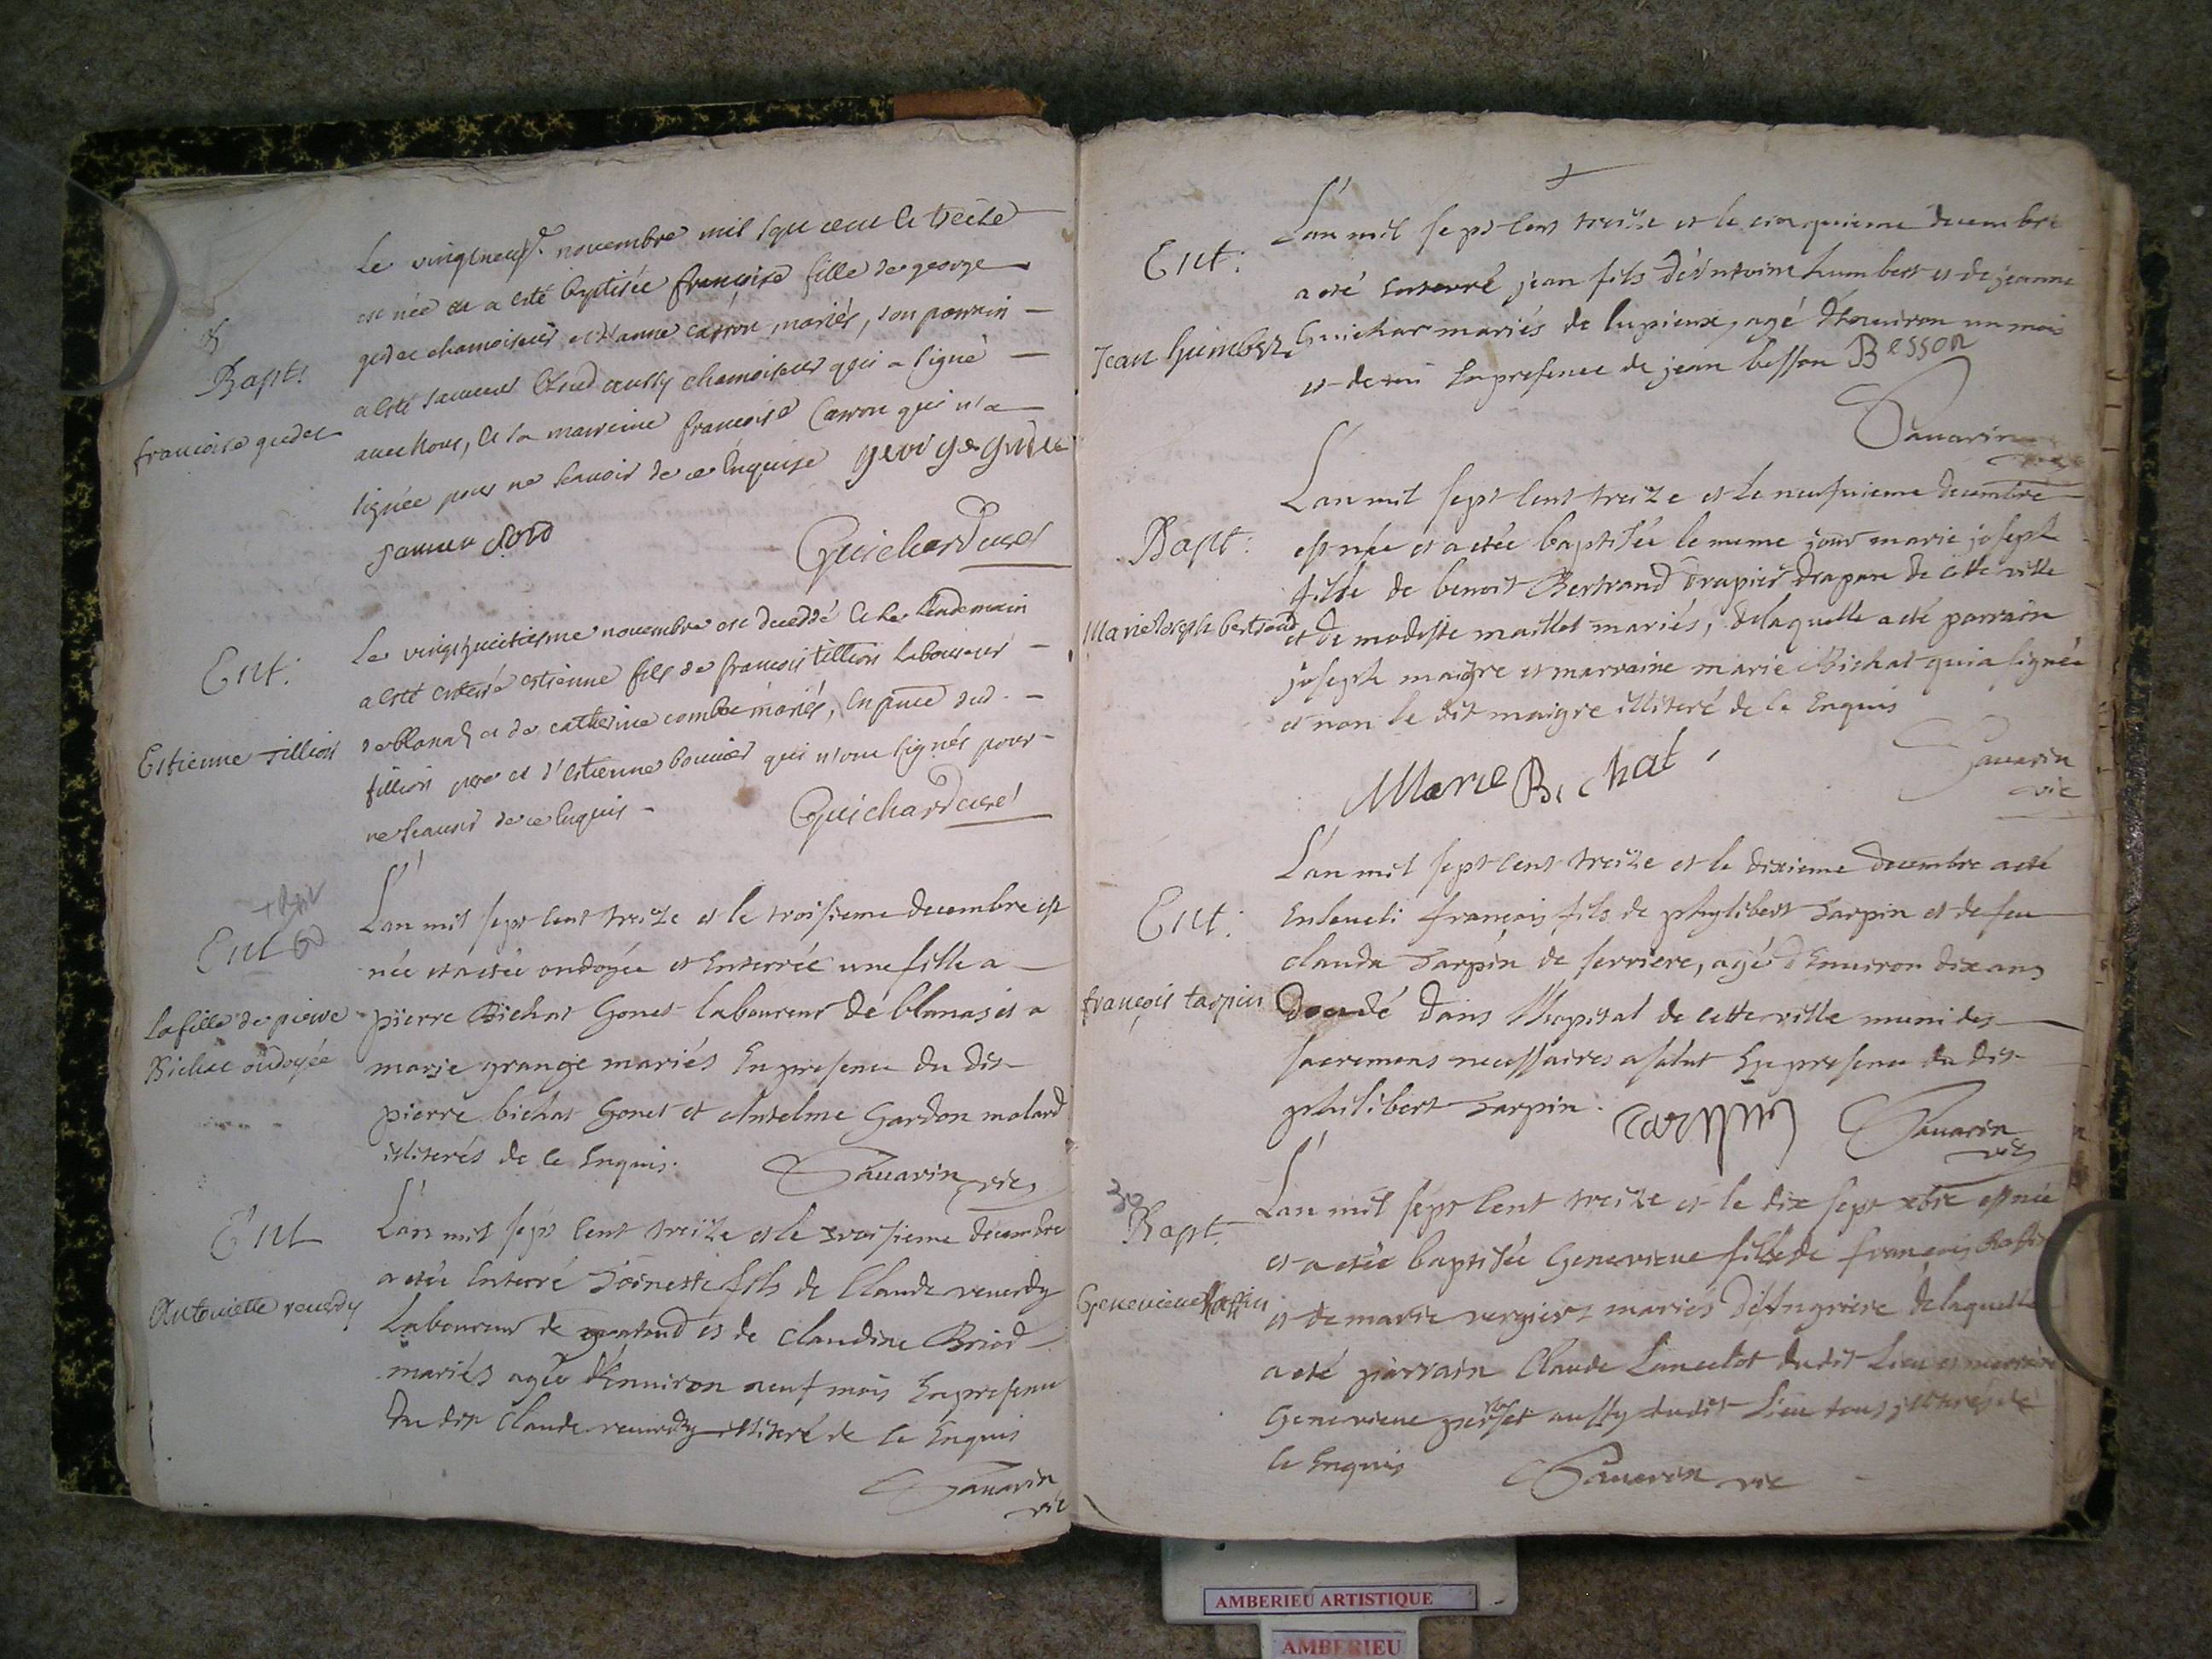 Bapt:
françoise gudet
Le vingtneuf.e novembre mil sept cent et treize
est née et a esté baptisée françoise fille de george
gudet chamoiseur et d'anne carron mariés, son parrain
a esté aussy chamoiseur qui a signé
avec nous, et sa marreine françoise Carron qui n'a
signée pour ne scavoir de ce enquise george gudet
Guichard curé
Ent:
Estienne tillion
Le vingthuitiesme novembre est decedé et le lendemain
a esté enterré estienne fils de francois tillion laboureur
de blanaz et de catherine combe mariés, en pnce dud.
tillion pere et d'estienne bouvier qui n'ont signés pour
ne scavoir de ce enquis
Guichard curé
Ent
La fille de pierre
Bichat ondoyée
L'an mil sept cent treize et le troisieme decembre est
née et a etée ondoyée et enterrée une fille a
pierre Bichat Gonet laboureur de blanas et a
marie grange mariés en presence du dit
pierre bichat Gonet et Antelme Gardon molard
illiterés de ce enquis. Savarin vic
Ent
Antoinette reverdy
L'an mil sept cent treize et le troisieme decembre
a etée enterré Toinette fils de Claude reverdy
Laboureur de et de claudine Briod
mariés agée d'environ neuf mois en presence
du dit Claude reverdy illiteré de ce enquis
Savarin
vic
Ent:
Jean humbert
L'an mil sept cent treize et le cinquieme decembre
a eté enterré jean fils d'éntoine humbert et de jeanne
Guichar mariés de lupieux, agé d'environ un mois
et demi en presence de jean besson Besson
Savarin
Bapt:
Marie Joseph bertrand
L'an mil sept cent treize et le neufvieme decembre
est née et a etée baptisée le meme jour marie joseph
fille de benoit Bertrand drapier drapan de cette ville
et de modeste maillet mariés, de laquelle a eté parrain
joseph maigre et marraine marie Bichat qui a signée
et non le dit maigre illiteré de ce enquis
Marie Bichat
Savarin
vic
Ent:
françois tarpin
L'an mil sept cent treize et le dixieme decembre a eté
enseveli françois fils de phylibert Tarpin et de feu
claude Tarpin de serriere, agé d'environ dix ans
decedé dans l'hopital de cette ville muni des
sacremens necessaires a salut en presence du dit
philibert Tarpin. tarpin Savarin
vic
Bapt.
Genevieve Raffin
L'an mil sept cent treize et le dix sept xbre est née
et a etée baptisée Genevieve fille de françois Raffin
et de marie vergier mariés d'Angriere de laquelle
a eté parrain Claude Lancelot du dit Lieu et marraine
Genevieve aussy du dit Lieu tous illiterés de
ce enquis Savarin vic
AMBERIEU ARTISTIQUE
AMBERIEU